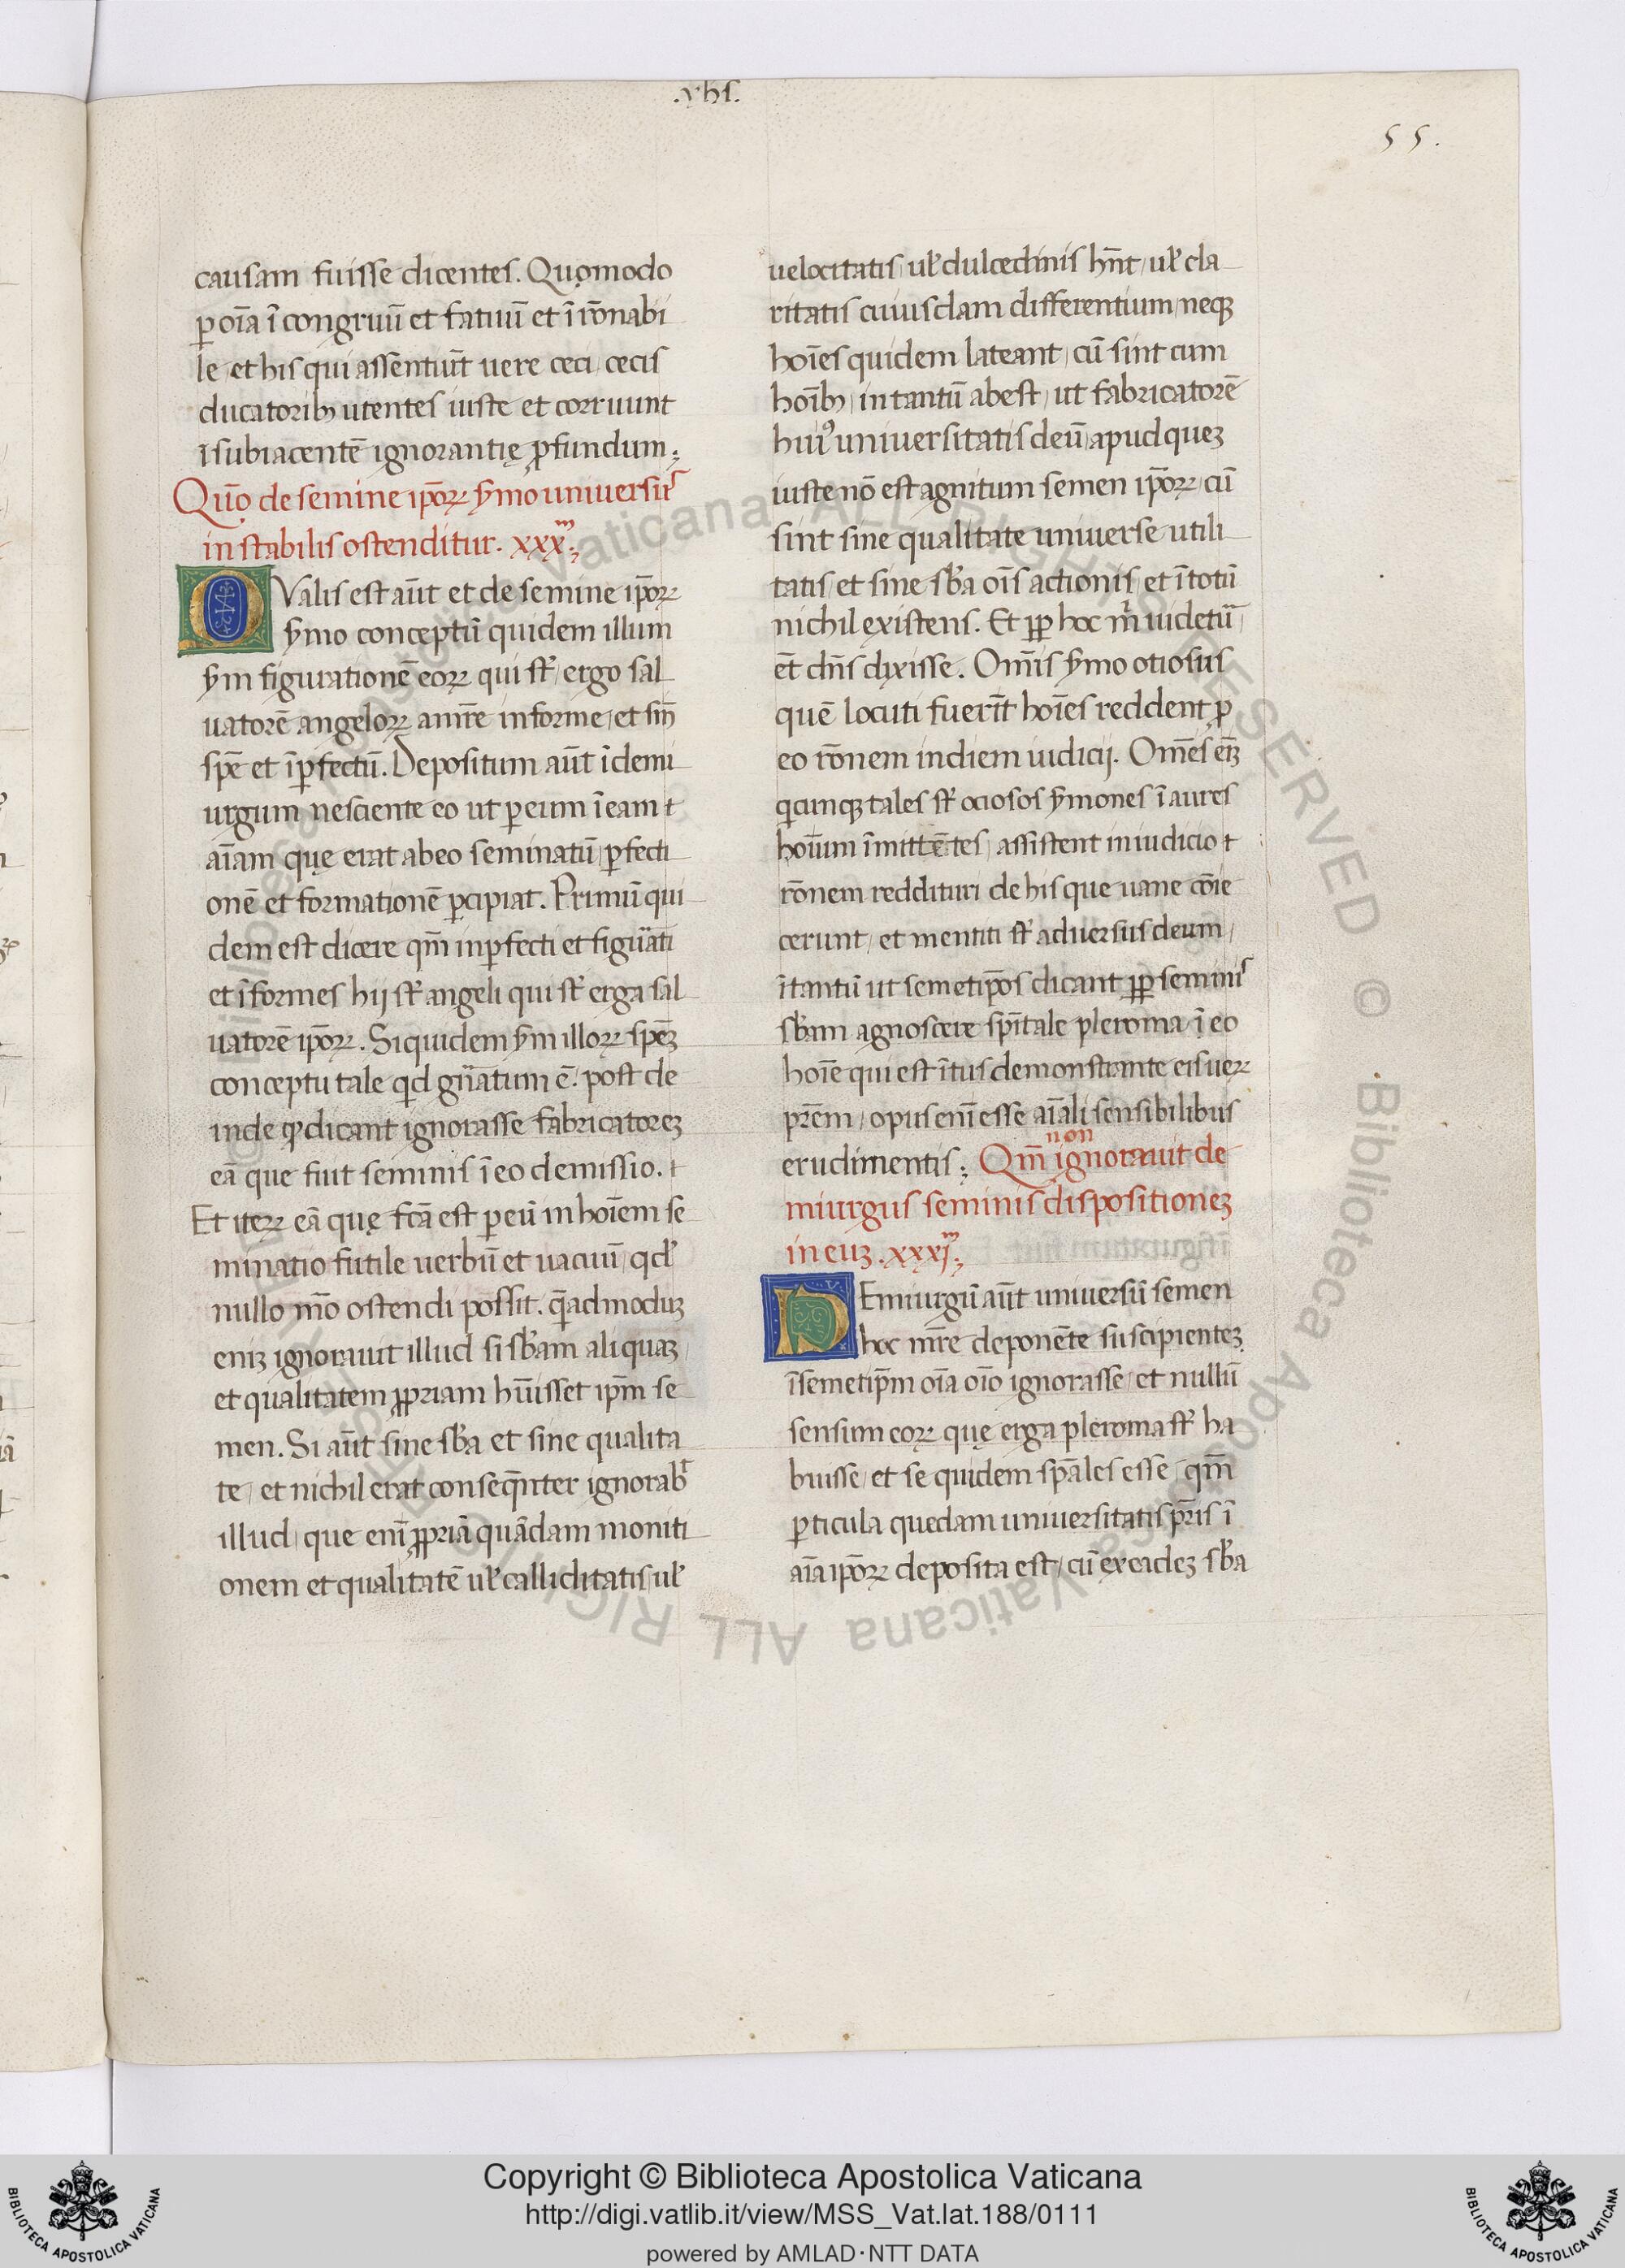 .yhs.
55.
causam fuisse dicentes. Quomodo
ꝑ oīa ī congruū et fatuū et ī rōnabi
le, et his qui assentiūt uere ceci, cecis
ducatorib; utentes iuste et corruunt
ī subiacentē ignorantię ꝓfundum;
Quō de semine ip̄oꝝ ẜmo uniuersus
instabilis ostenditur. xxxᵐ;
QValis est aūt et de semine ip̄oꝝ
ẜmo conceptū quidem illum
ẜm figurationē eoꝝ qui st̄, ergo sal
uatorē angeloꝝ a mr̄e informe, et sin̄
spē et īꝑfectū. Depositum aūt ī demi
urgum nesciente eo ut ꝑ eum ī eam
aīam quę erat ab eo seminatū, ꝑfecti
onē et formationē ꝑcipiat. Primū qui
dem est dicere qm̄ inꝑfecti et figūati
et īformes hij st̄ angeli qui st̄ erga sal
uatorē ip̄oꝝ. Siquidem ẜm illoꝝ spēꝫ
conceptu tale qd gn̄atum ē. post de
inde ꝙ dicant ignorasse fabricatoreꝫ
eā que fiut seminis ī eo demissio.
Et iteꝝ eā quę fcā est ꝑ eū in hoīem se
minatio futile uerbū et uacuū, qd'
nullo mō ostendi possit. q̄admoduꝫ
eniꝫ ignorauit illud si sb̄am aliquaꝫ,
et qualitatem ꝓpriam hūisset ip̄m se
men. Si aūt sine sb̄a et sine qualita
te, et nichil erat conseq̄nter ignorabᵗ
illud, que enī ꝓpriā quādam moniti
onem et qualitatē ul' calliditatis, ul'
uelocitatis, ul' dulcedinis hn̄t, ul' cla
ritatis cuiusdam differentium, neqꝫ
hoīes quidem lateant, cū sint cum
hoīb;, in tantū abest, ut fabricatorē
huiꝰ uniuersitatis deū, apud queꝫ
iuste nō est agnitum semen ip̄oꝝ, cū
sint sine qualitate uniuerse utili
tatis, et sine sb̄a oīs actionis, et ī totū
nichil existens. Et ꝓp hoc m̄ uidetū,
et dn̄s dixisse. Omīs ẜmo otiosus
quē locuti fuerīt hoīes reddent ꝓ
eo rōnem in diem iudicij. Omēs en̄ꝫ
qcunqꝫ tales st̄ ociosos ẜmones ī aures
hoīum īmittētes, assistent in iudicio
rōnem reddituri de his que uane cōie
cerunt, et mentiti st̄ aduersus deum,
ītantū ut semetip̄os dicant ꝓp seminis
sb̄am agnoscere spītale pleroma, ī eo
hoīe qui est ītus demonstrante eis ueꝝ
prēm, opus enī esse aīali sensibilibus
erudimentis; Qm̄ non ignorauit de
miurgus seminis dispositioneꝫ
in euꝫ. xxxjᵐ;
DEmiurgū aūt uniuersū semen
hoc mr̄e deponēte suscipienteꝫ
ī semetip̄m oīa oīo ignorasse, et nullū
sensum eoꝝ quę erga pleroma st̄ ha
buisse, et se quidem spāles esse, qm̄
ꝑticula quedam uniuersitatis pr̄is ī
aīa ip̄oꝝ deposita est, cū ex eadeꝫ sb̄a
Copyright © Biblioteca Apostolica Vaticana
http://digi.vatlib.it/view/MSS_Vat.lat.188/0111
powered by AMLAD·NTT DATA
BIBLIOTECA APOSTOLICA VATICANA
BIBLIOTECA APOSTOLICA VATICANA